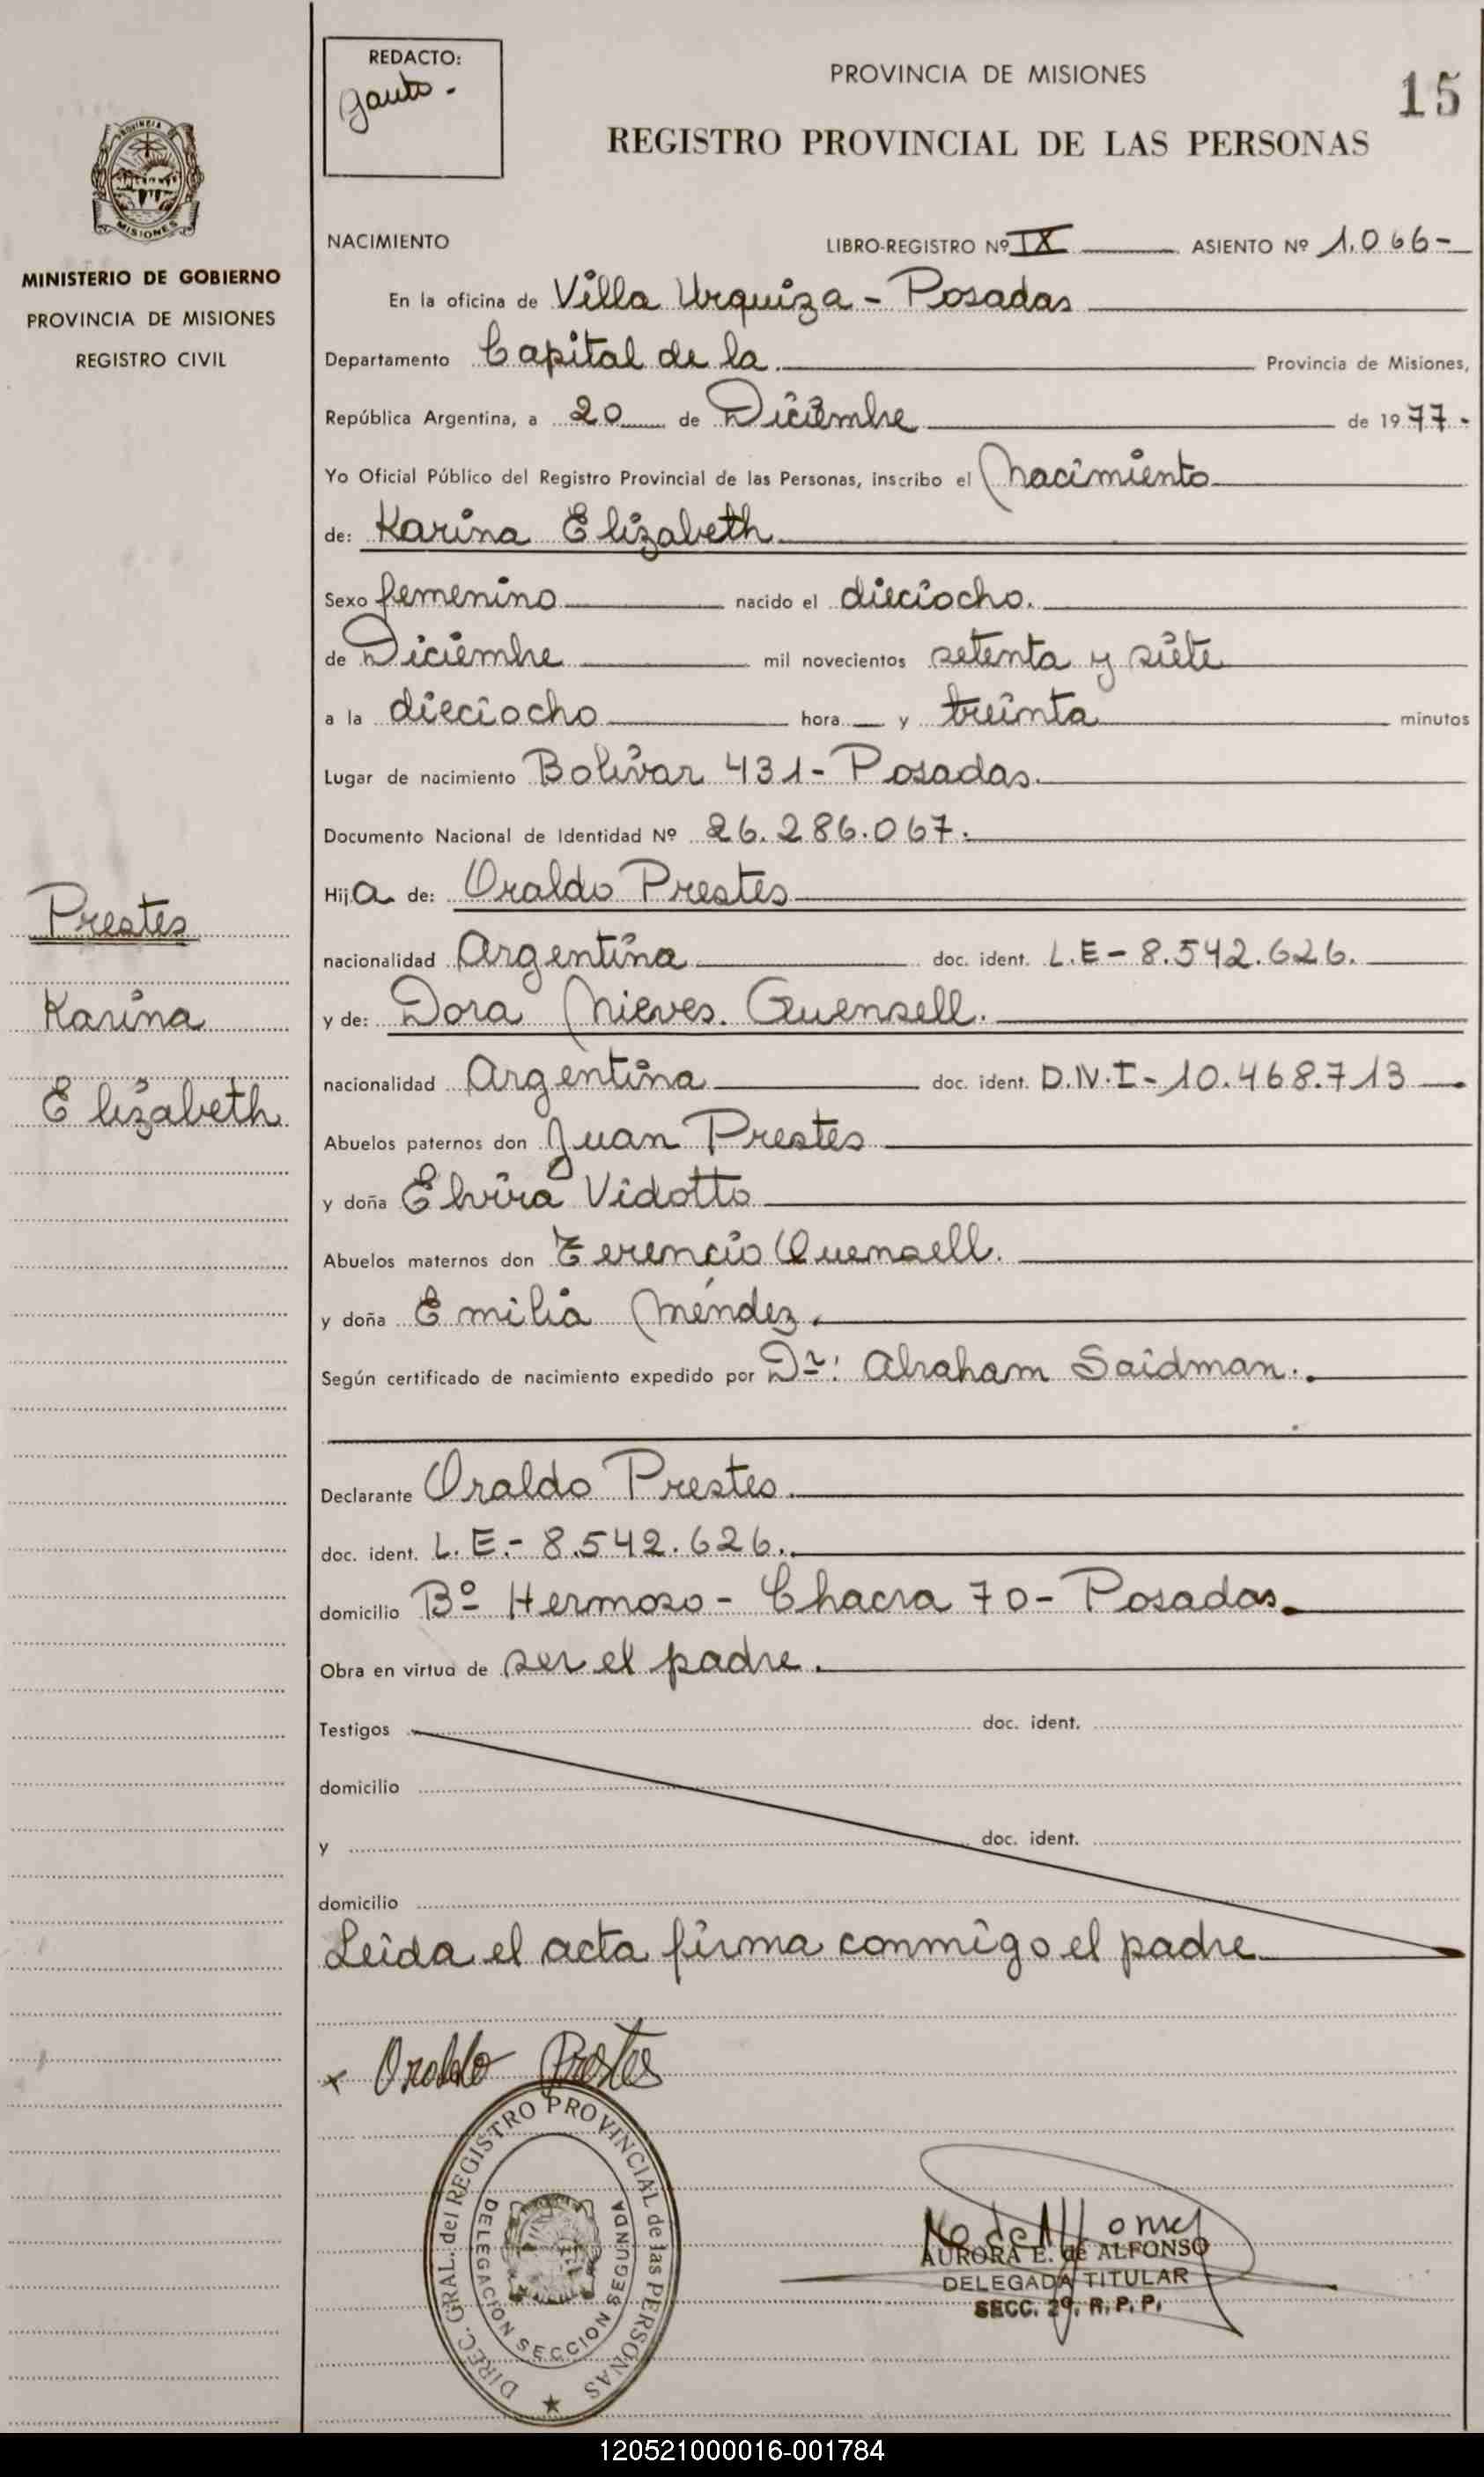 REDACTO:
Gauto.-
PROVINCIA DE MISIONES
15
REGISTRO PROVINCIAL DE LAS PERSONAS
PROVINCIA DE
MISIONES
MINISTERIO DE GOBIERNO
PROVINCIA DE MISIONES
REGISTRO CIVIL
NACIMIENTO LIBRO-REGISTRO Nº IX ASIENTO Nº 1.066-
En la oficina de Villa Urquiza - Posadas
Departamento Capital de la Provincia de Misiones,
República Argentina, a 20 de Diciembre de 1977-
Yo Oficial Público del Registro Provincial de las Personas, inscribo el Nacimiento
de: Karina Elizabeth
Sexo femenino nacido el dieciocho.
de Diciembre mil novecientos setenta y siete
a la dieciocho hora y treinta minutos
Lugar de nacimiento Bolívar 431- Posadas.
Documento Nacional de Identidad Nº 26.286.067.
Hija de: Oraldo Prestes
nacionalidad Argentina doc. ident. L.E-8.542.626.
y de: Dora Nieves. Quensell.
nacionalidad Argentina doc. ident. D.N.I-10.468.713
Abuelos paternos don Juan Prestes
y doña Elvira Vidotto
Abuelos maternos don Terencio Quensell.
y doña Emilia Méndez.
Según certificado de nacimiento expedido por Dr: Abraham Saidman.
Prestes
Karina
Elizabeth
Declarante Oraldo Prestes.
doc. ident. L.E.- 8.542.626.
domicilio Bº Hermoso - Chacra 70- Posadas.
Obra en virtud de ser el padre.
Testigos doc. ident.
domicilio
y doc. ident.
domicilio
Leída el acta firma conmigo el padre
x Oraldo Prestes
DIREC. GRAL. del REGISTRO PROVINCIAL de las PERSONAS
DELEGACION SECCION SEGUNDA
AURORA E. de ALFONSO
DELEGADA TITULAR
SECC. 2º. R. P. P.
120521000016-001784